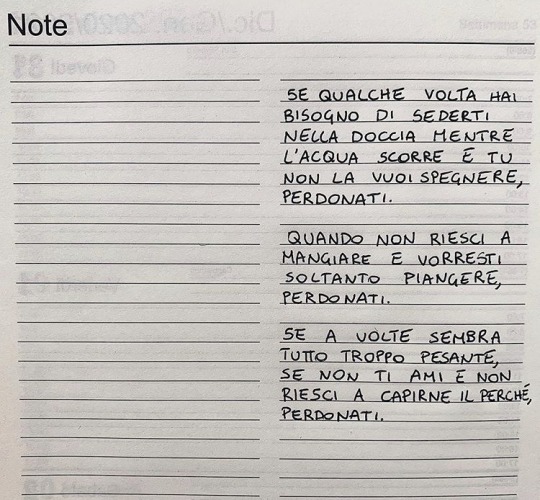 Note
SE QUALCHE VOLTA HAI
BISOGNO DI SEDERTI
NELLA DOCCIA MENTRE
L'ACQUA SCORRE E TU
NON LA VUOI SPEGNERE,
PERDONATI.
QUANDO NON RIESCI A
MANGIARE E VORRESTI
SOLTANTO PIANGERE,
PERDONATI.
SE A VOLTE SEMBRA
TUTTO TROPPO PESANTE,
SE NON TI AMI E NON
RIESCI A CAPIRNE IL PERCHÉ,
PERDONATI.